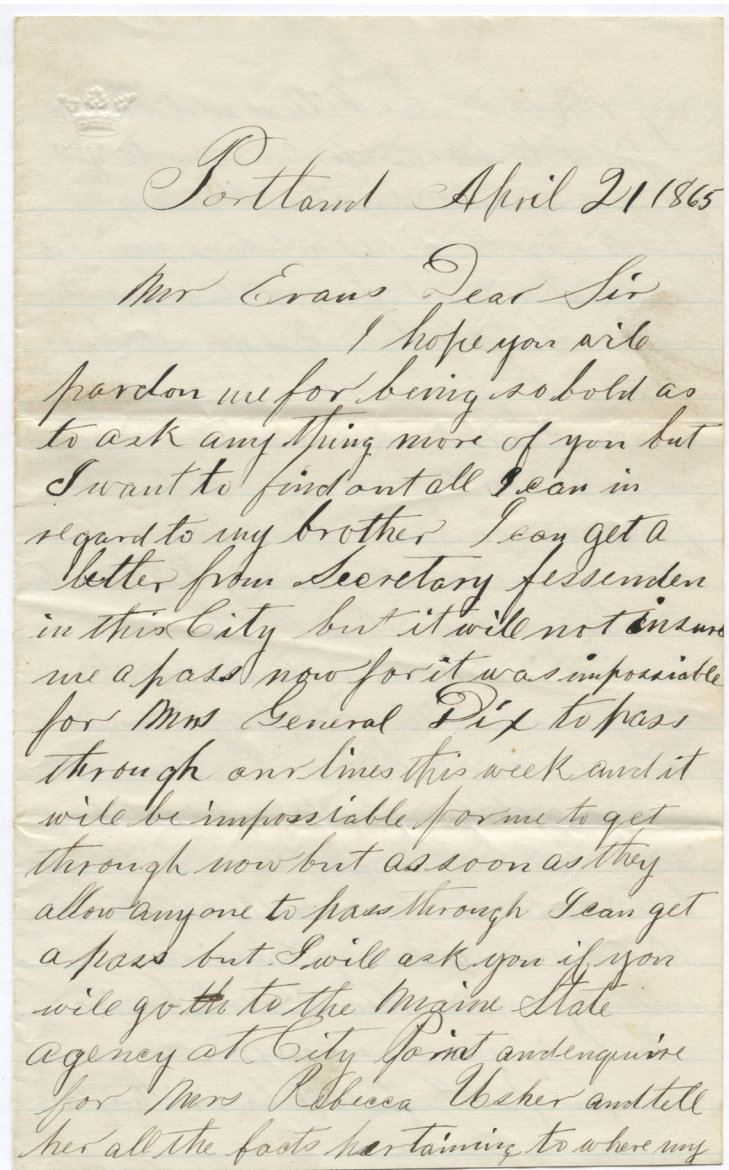 IMPERIAL
Portland April 21 1865
Mr Evans Dear Sir
I hope you will
pardon me for being so bold as
to ask any thing more of you but
I want to find out all I can in
regard to my brother I can get a
letter from Secretary Fessenden
in this City but it will not insure
me a pass now for it was impossiable
for Mrs General Dix to pass
through our lines this week and it
will be impossiable for me to get
through now but as soon as they
allow anyone to pass through I can get
a pass but I will ask you if you
will go to the Maine State
agency at City Point and enquire
for Mrs Rebecca Usher and tell
her all the facts pertaining to where my